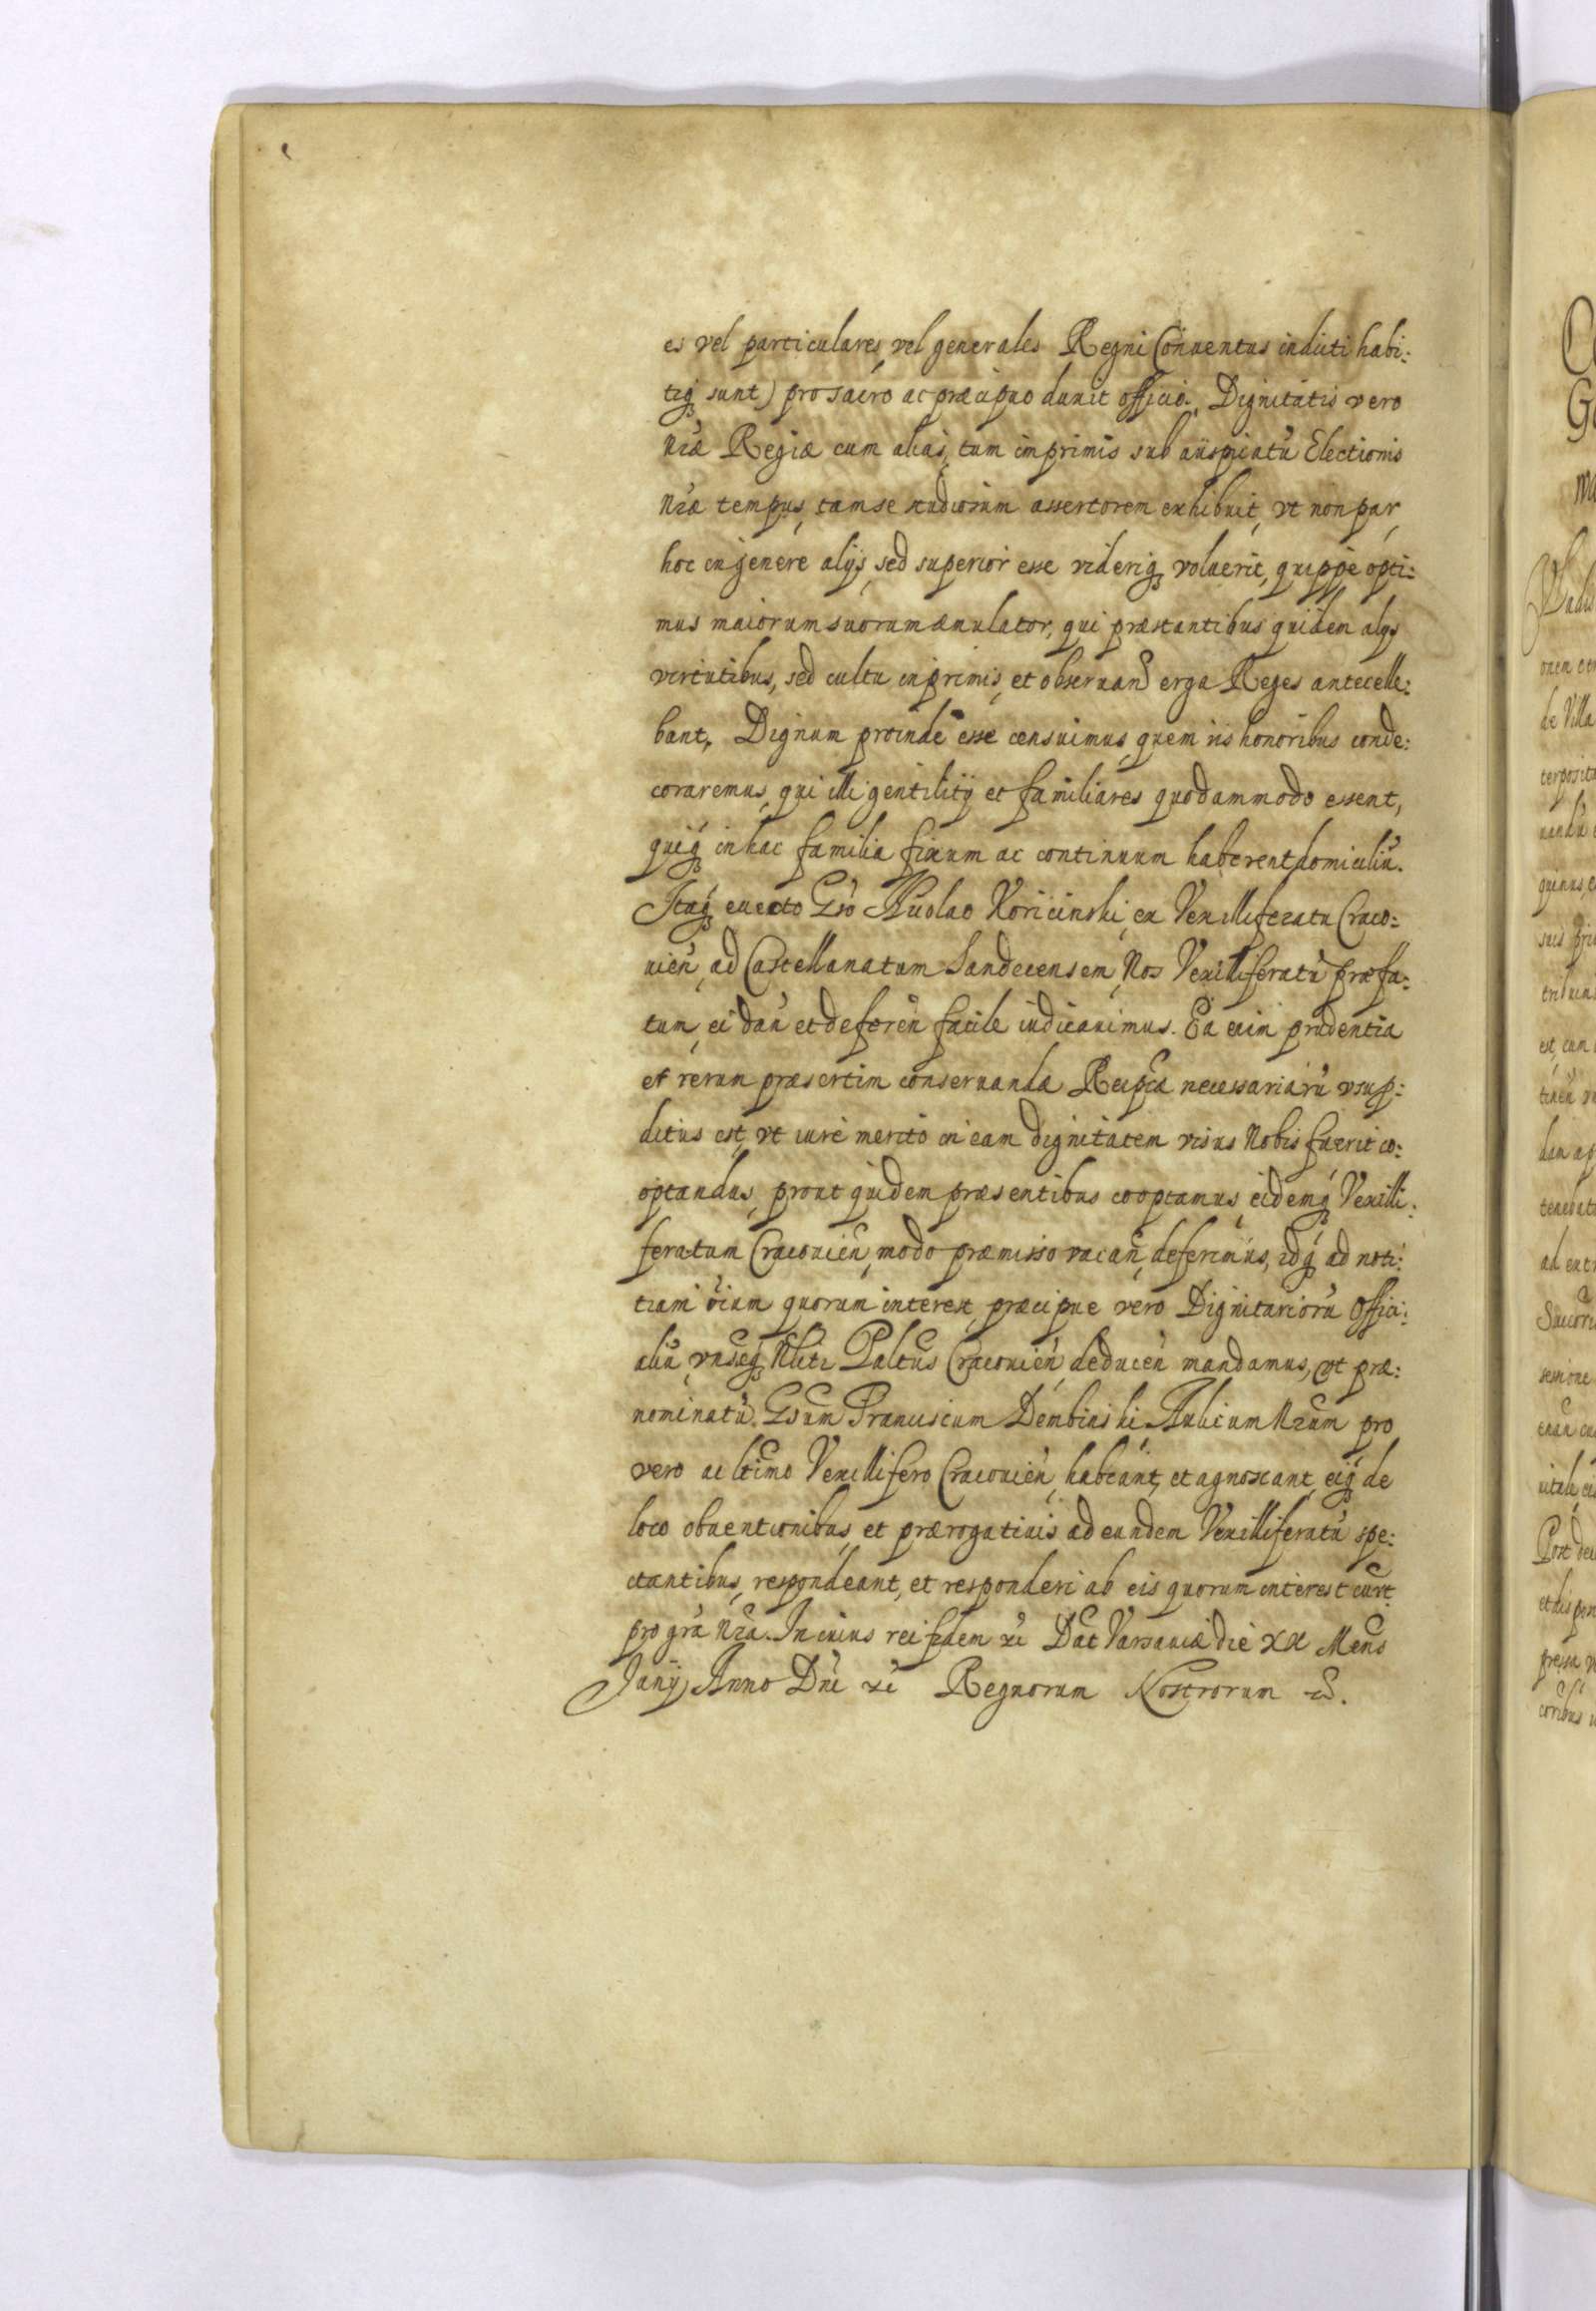 es vel particulares, vel generales Regni Conuentus indicti habi:
tiq₃ sunt) pro sacro ac præcipuo duxit officio. Dignitatis vero
Nræ Regiæ cum alias, tum imprimis sub auspicatũ Electionis
Nræ tempus, tam se studiosum assertorem exhibuit, vt non par
hoc in genere alijs, sed superior esse viderig₃ voluerit, quippe opti:
mus maiorum suorum æmulator, qui præstantibus quidem alijs
virtutibus, sed cultu inprimis, et obseruan erga Reges antecelle:
bant. Dignum proinde esse censuimus, quem iis honoribus conde:
coraremus, qui illi gentilitij et familiares quodammodo essent,
quiq₃ in hac familia fixum ac continuum haberent domiciliũ.
Itaq₃ euecto Gso Nicolao Koricinski, ex Vexilliferatu Craco:
uień, ad Castellanatum Sandecensem, Nos Vexilliferatũ præfa:
tum, ei dań et defereń facile iudicauimus. Ea enim prudentia
et rerum præsertim conseruandæ Reipcæ necessariarũ vsu p:
ditus est, vt iure merito in eam dignitatem visus Nobis fuerit co:
optandus, prout quidem præsentibus cooptamus, eidemq₃ Vexilli:
feratum Cracouień, modo præmisso vacań, deferimus, idq₃ ad noti:
tiam oium quorum interest, præcipue vero Dignitariorũ Offici:
aliũ, vnseq₃ Nlitt Paltus Cracouień deduceń mandamus, vt præ:
nominatũ Gsum Franciscum Dembinski Aulicum Nrum pro
vero ac ltimo Vexillifero Cracouień, habeant, et agnoscant, eiq₃ de
loco obuentionibus, et prærogatiuis ad eundem Vexilliferatũ spe:
ctantibus, respondeant, et responderi ab eis quorum interest curt
pro gra Nra. In cuius rei fidem &c Dat Varsauiæ die XX Mens
Junij Anno Dni &c Regnorum Nostrorum &.